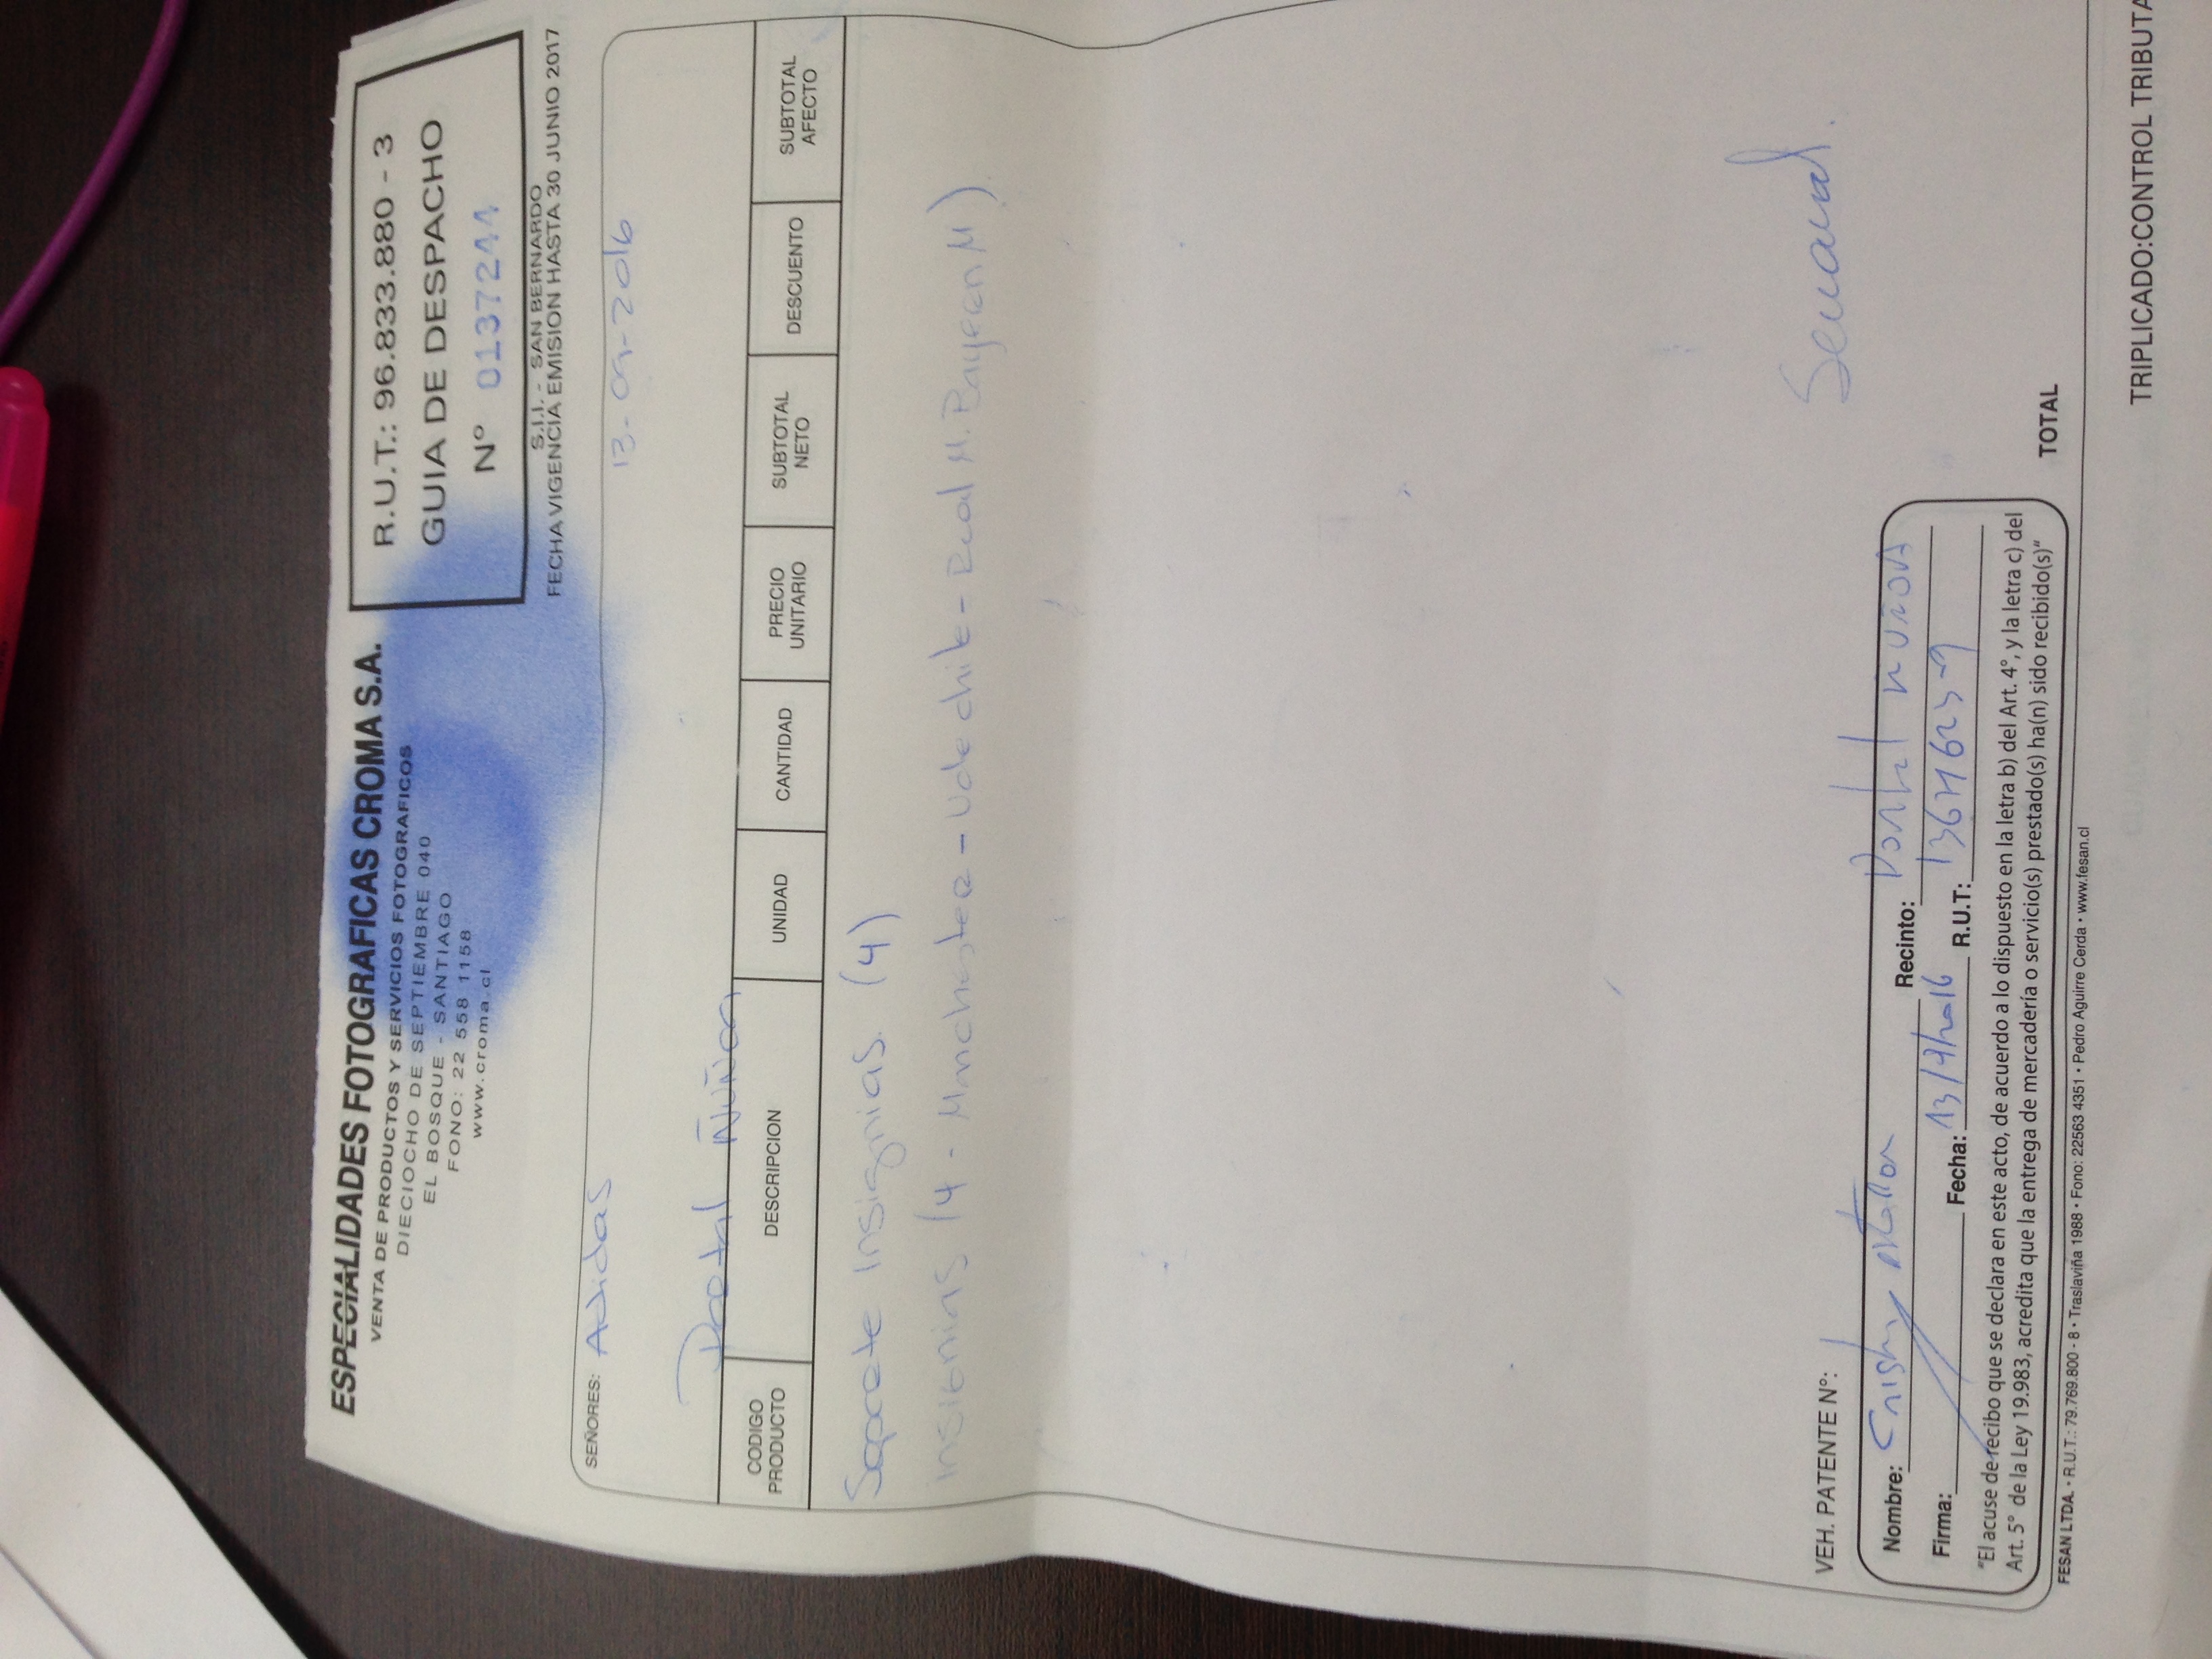 ESPECIALIDADES FOTOGRAFICAS CROMA S.A.
VENTA DE PRODUCTOS Y SERVICIOS FOTOGRAFICOS
DIECIOCHO DE SEPTIEMBRE 040
EL BOSQUE - SANTIAGO
FONO: 22 558 1158
www.croma.cl
R.U.T.: 96.833.880 - 3
GUIA DE DESPACHO
Nº 0137244
S.I.I. - SAN BERNARDO
FECHA VIGENCIA EMISION HASTA 30 JUNIO 2017
SEÑORES: Adidas
13-09-2016
Portal ÑUÑoa
CODIGO PRODUCTO DESCRIPCION UNIDAD CANTIDAD PRECIO UNITARIO SUBTOTAL NETO DESCUENTO SUBTOTAL AFECTO
Soporte Insignias. (4)
insignias (4 - Manchester - U de chile - Real M. Bayern M)
Semanal.
VEH. PATENTE Nº:
Nombre: Recinto: Portal ñuñoa
Firma: Fecha: 13/9/2016 R.U.T:
"El acuse de recibo que se declara en este acto, de acuerdo a lo dispuesto en la letra b) del Art. 4°, y la letra c) del
Art. 5° de la Ley 19.983, acredita que la entrega de mercadería o servicio(s) prestado(s) ha(n) sido recibido(s)"
TOTAL
FESAN LTDA. • R.U.T.: 79.769.800 - 8 • Traslaviña 1988 • Fono: 22563 4351 • Pedro Aguirre Cerda • www.fesan.cl
TRIPLICADO:CONTROL TRIBUTA